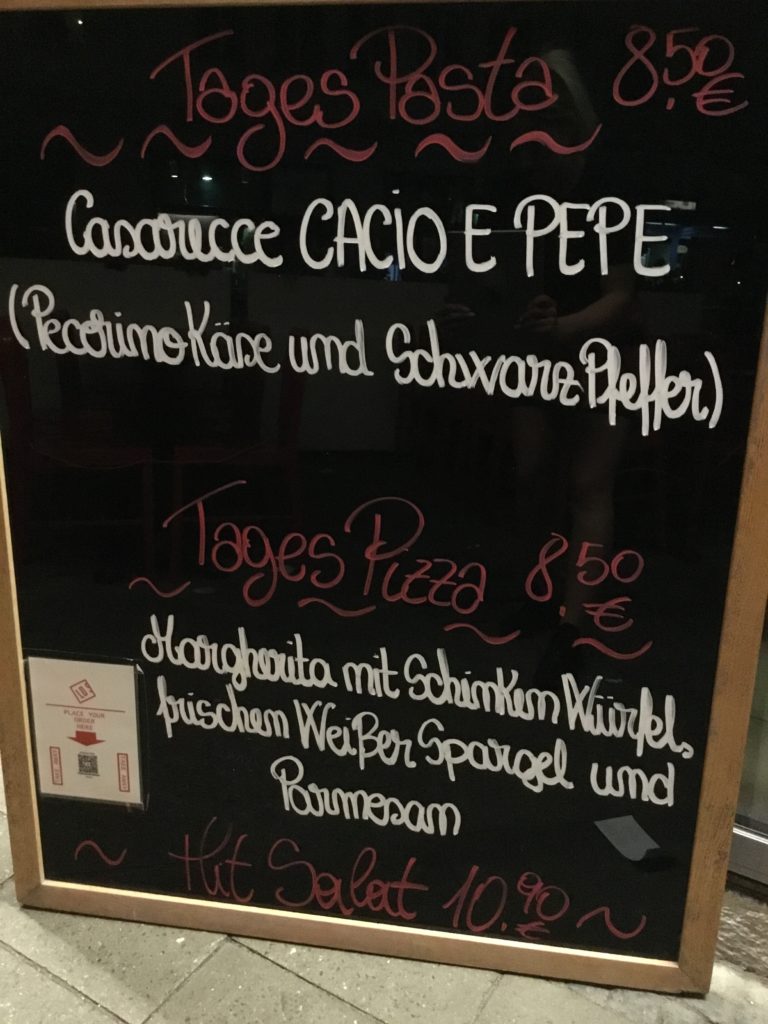 Tages Pasta 8.50 €
Casarecce CACIO E PEPE
(Pecorino Käse und Schwarz Pfeffer)
Tages Pizza 8.50 €
Margherita mit Schinken Würfel,
frischen Weißer Spargel und
Parmesan
PLACE YOUR
ORDER
HERE
Hit Salat 10.90 €